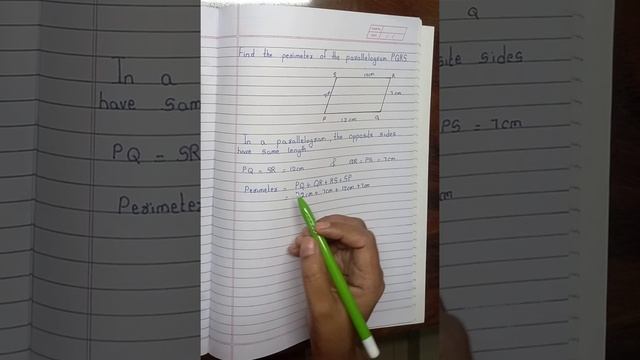 Find the perimeter of the parallelogram PQRS
S 12cm R
7cm
P 12cm Q
In a parallelogram, the opposite sides
have same length
PQ = SR = 12cm & QR = PS = 7cm
Perimeter = PQ + QR + RS + SP
= 12cm + 7cm + 12cm + 7cm
Q
In a
have sam
PQ = SR
Perimete
site sides
PS = 7cm